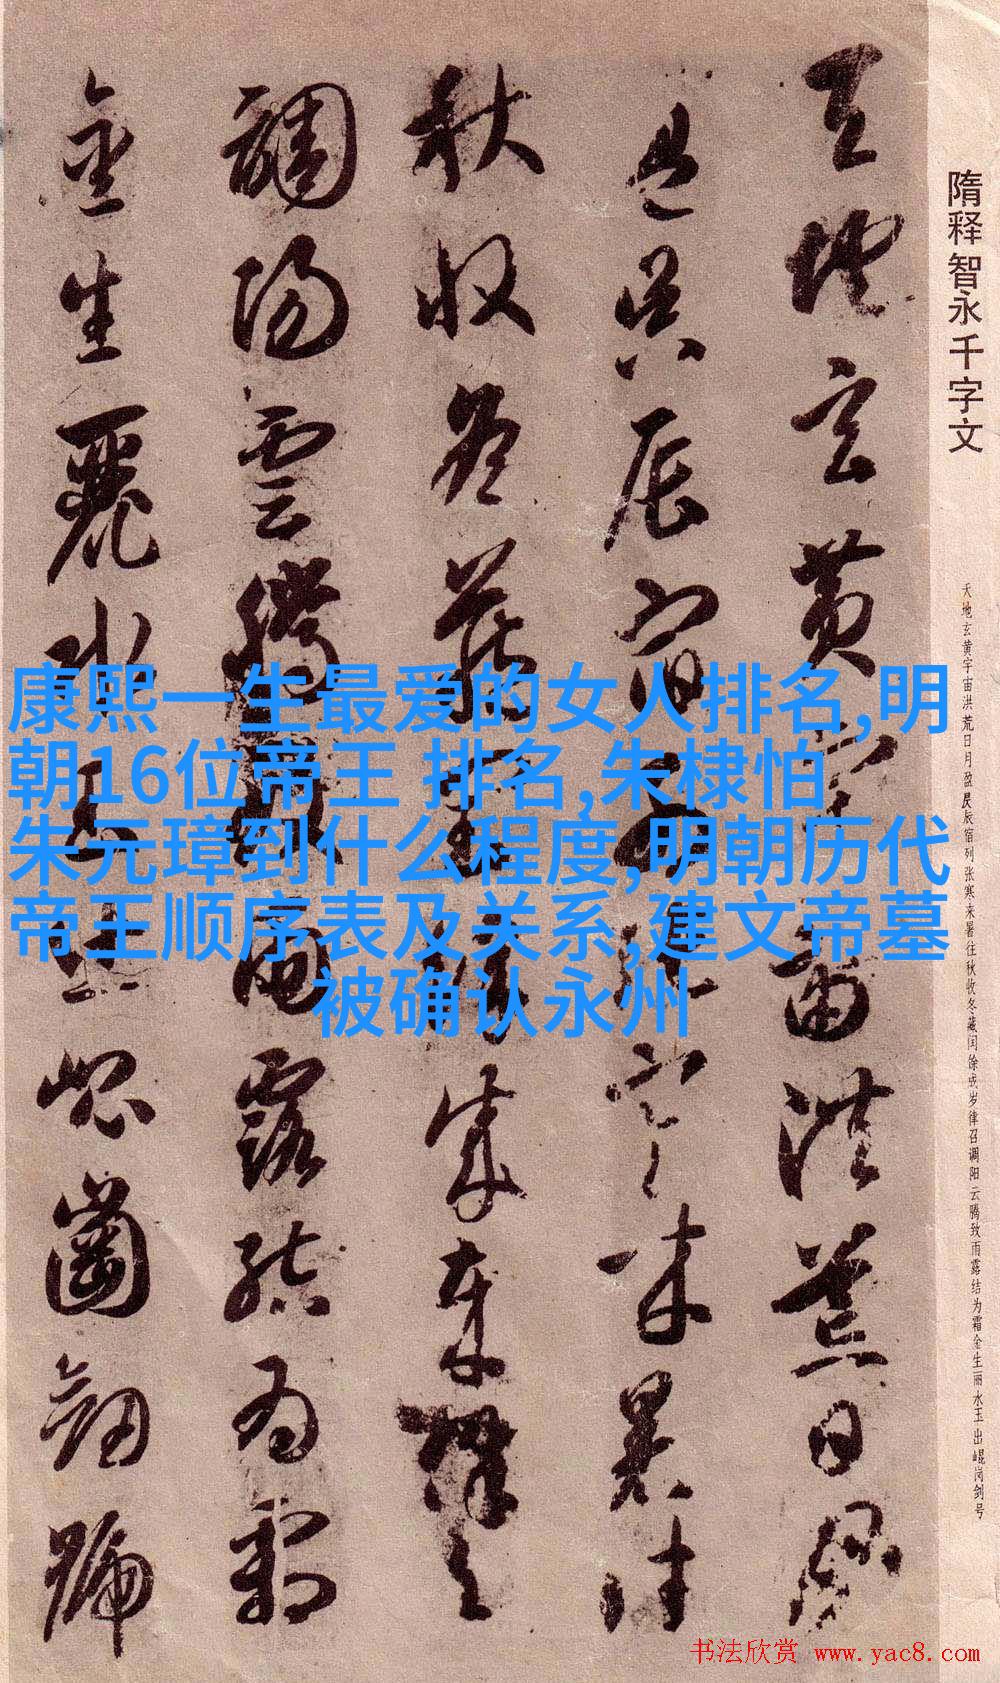 隋释智永千字文
天地玄黄宇宙洪荒日月盈昃辰宿列张寒来暑往秋收冬藏闰馀成岁律召调阳云腾致雨露结为霜金生丽水玉出崐岗剑号
天地玄黄宇宙洪荒日月
盈昃辰宿列張寒来暑往
秋收冬蔵閏餘成歲律吕
調陽雲騰致雨露結為霜
金生麗水玉出崑崗劍號
康熙一生最爱的女人排名,明
朝16位帝王 排名,朱棣怕
朱元璋到什么程度,明朝历代
帝王顺序表及关系,建文帝墓
被确认永州
书法欣赏 www.yac8.com